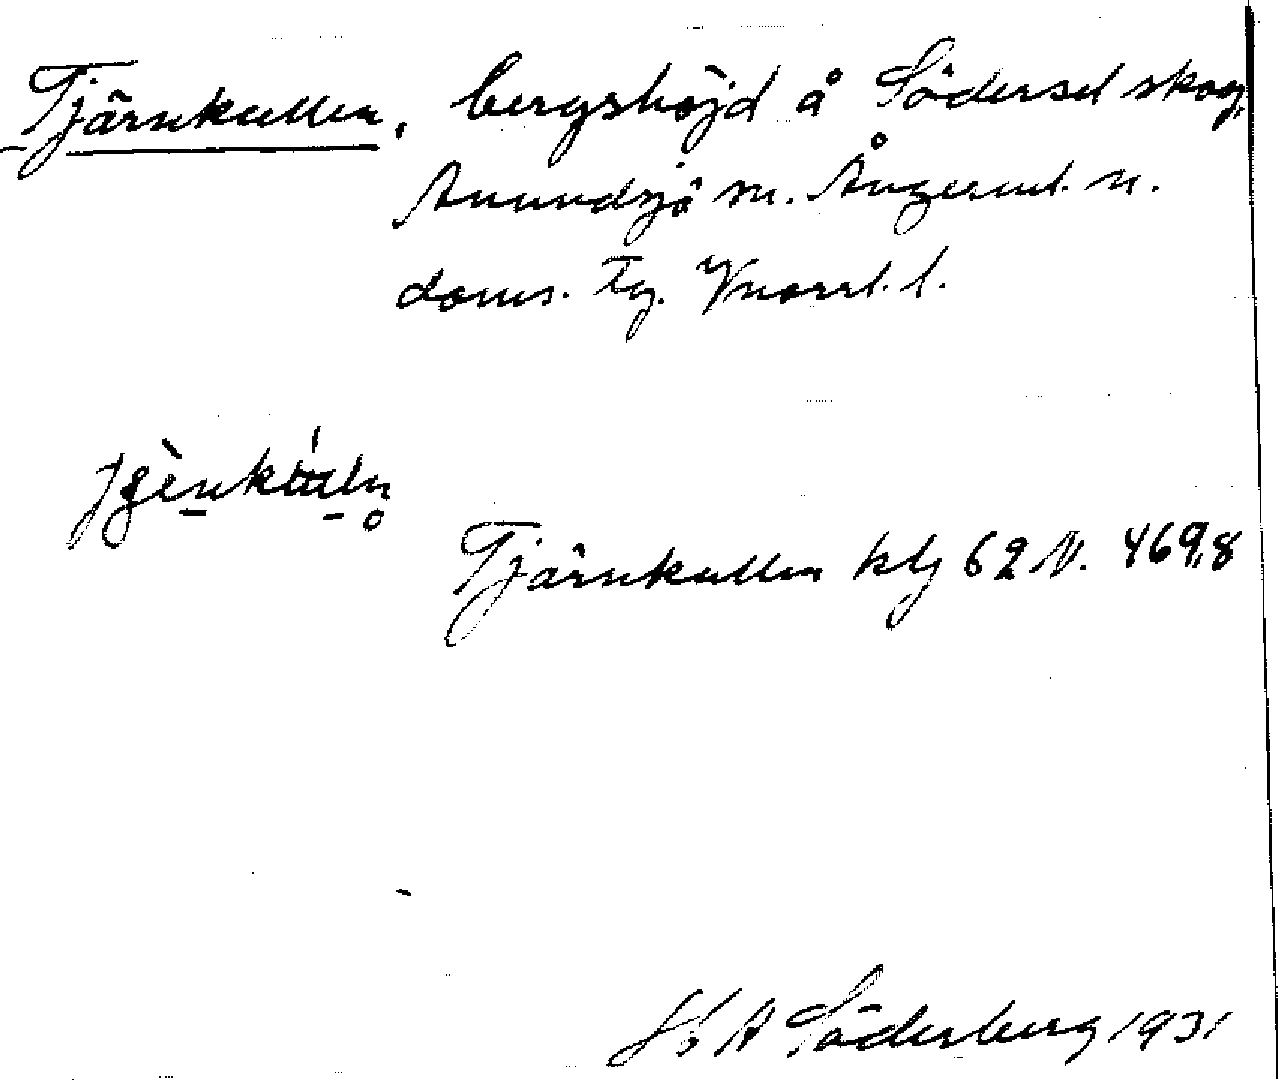 Tjärnkullen, bergshöjd å Södersel skog,
Anundsjö sn. Ångerml. n.
doms. Tg. Vnorrl. l.
Tjärnkullen kbl 62 N. 469,8
A Söderberg 1931